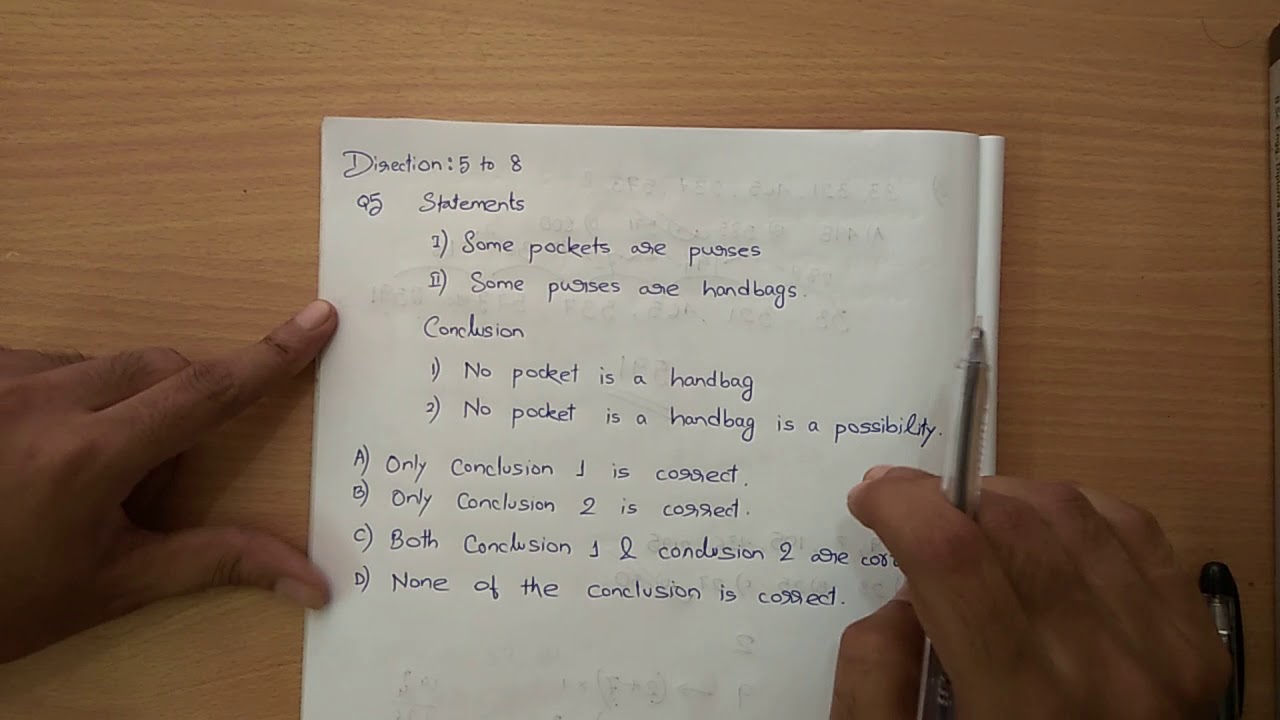 Direction: 5 to 8
Q5 Statements
I) Some pockets are purses
II) Some purses are handbags.
Conclusion
1) No pocket is a handbag
2) No pocket is a handbag is a possibility.
A) Only Conclusion 1 is correct.
B) Only Conclusion 2 is correct.
C) Both Conclusion 1 & conclusion 2 are
D) None of the conclusion is correct.